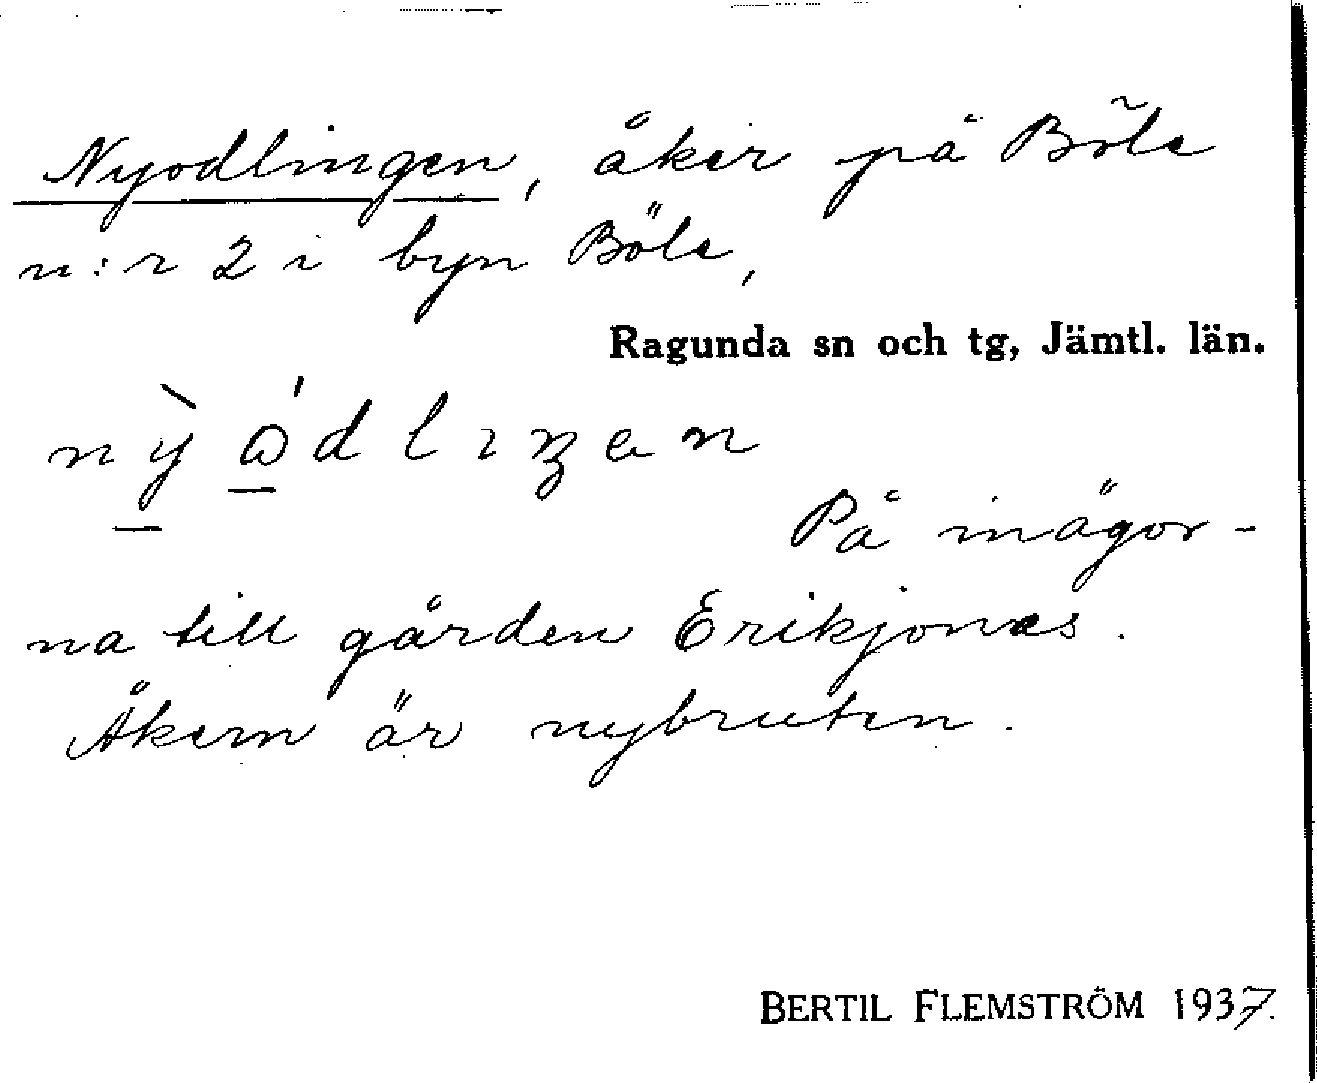 Nyodlingen, åker på Böle
n:r 2 i byn Böle,
Ragunda sn och tg, Jämtl. län.
På inägor-
na till gården Erikjonas.
Åkern är nybruten.
BERTIL FLEMSTRÖM 1937.